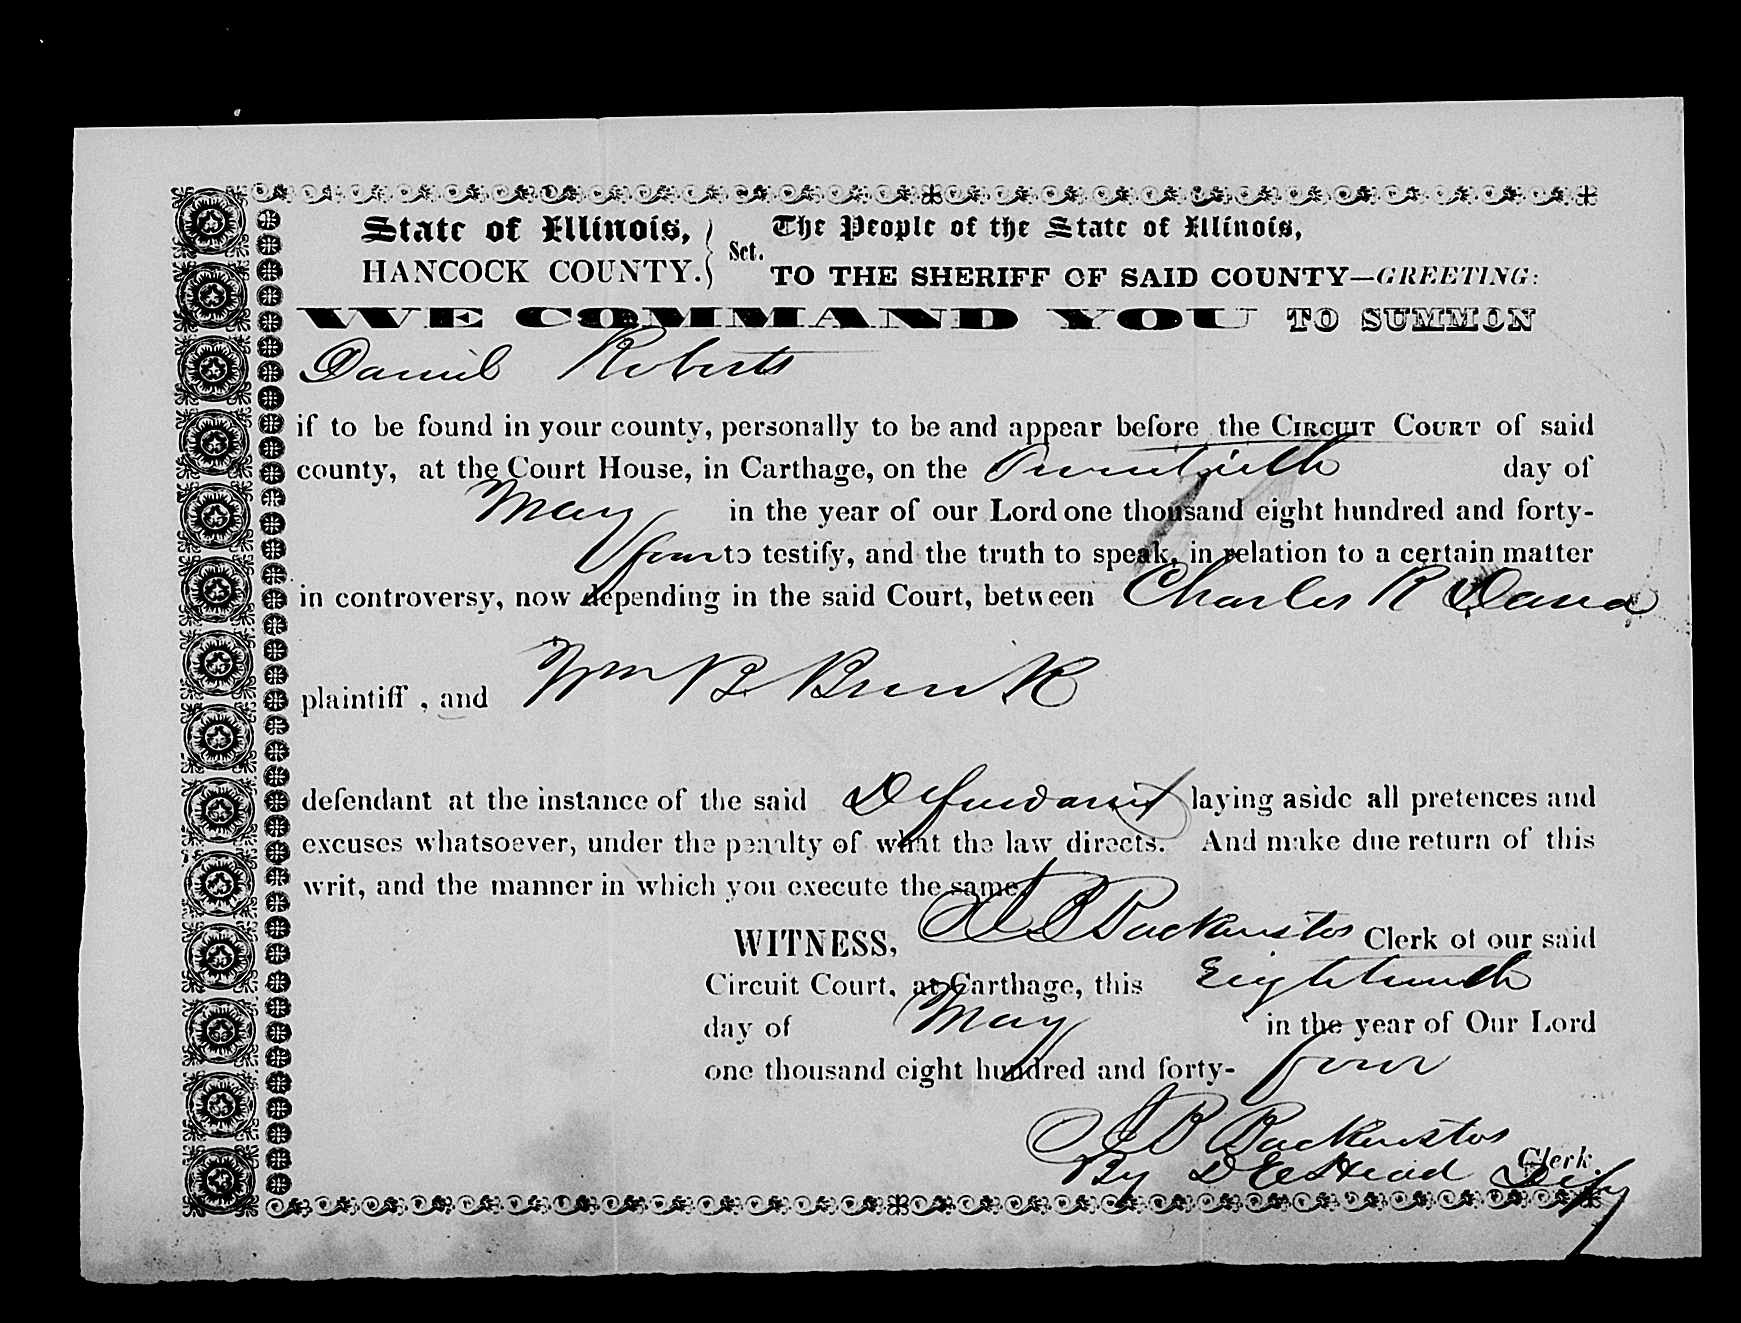 State of Illinois, } Sct. The People of the State of Illinois,
HANCOCK COUNTY. TO THE SHERIFF OF SAID COUNTY—GREETING:
WE COMMAND YOU TO SUMMON
Daniel Roberts
if to be found in your county, personally to be and appear before the CIRCUIT COURT of said
county, at the Court House, in Carthage, on the Twentieth day of
May in the year of our Lord one thousand eight hundred and forty-
four to testify, and the truth to speak, in relation to a certain matter
in controversy, now depending in the said Court, between Charles R Dana
plaintiff, and Wm B Brink
defendant at the instance of the said Defendant laying aside all pretences and
excuses whatsoever, under the penalty of what the law directs. And make due return of this
writ, and the manner in which you execute the same.
WITNESS, J B Backenstos Clerk of our said
Circuit Court, at Carthage, this Eighteenth
day of May in the year of Our Lord
one thousand eight hundred and forty- four
J B Backenstos Clerk.
By D E Head Dpy